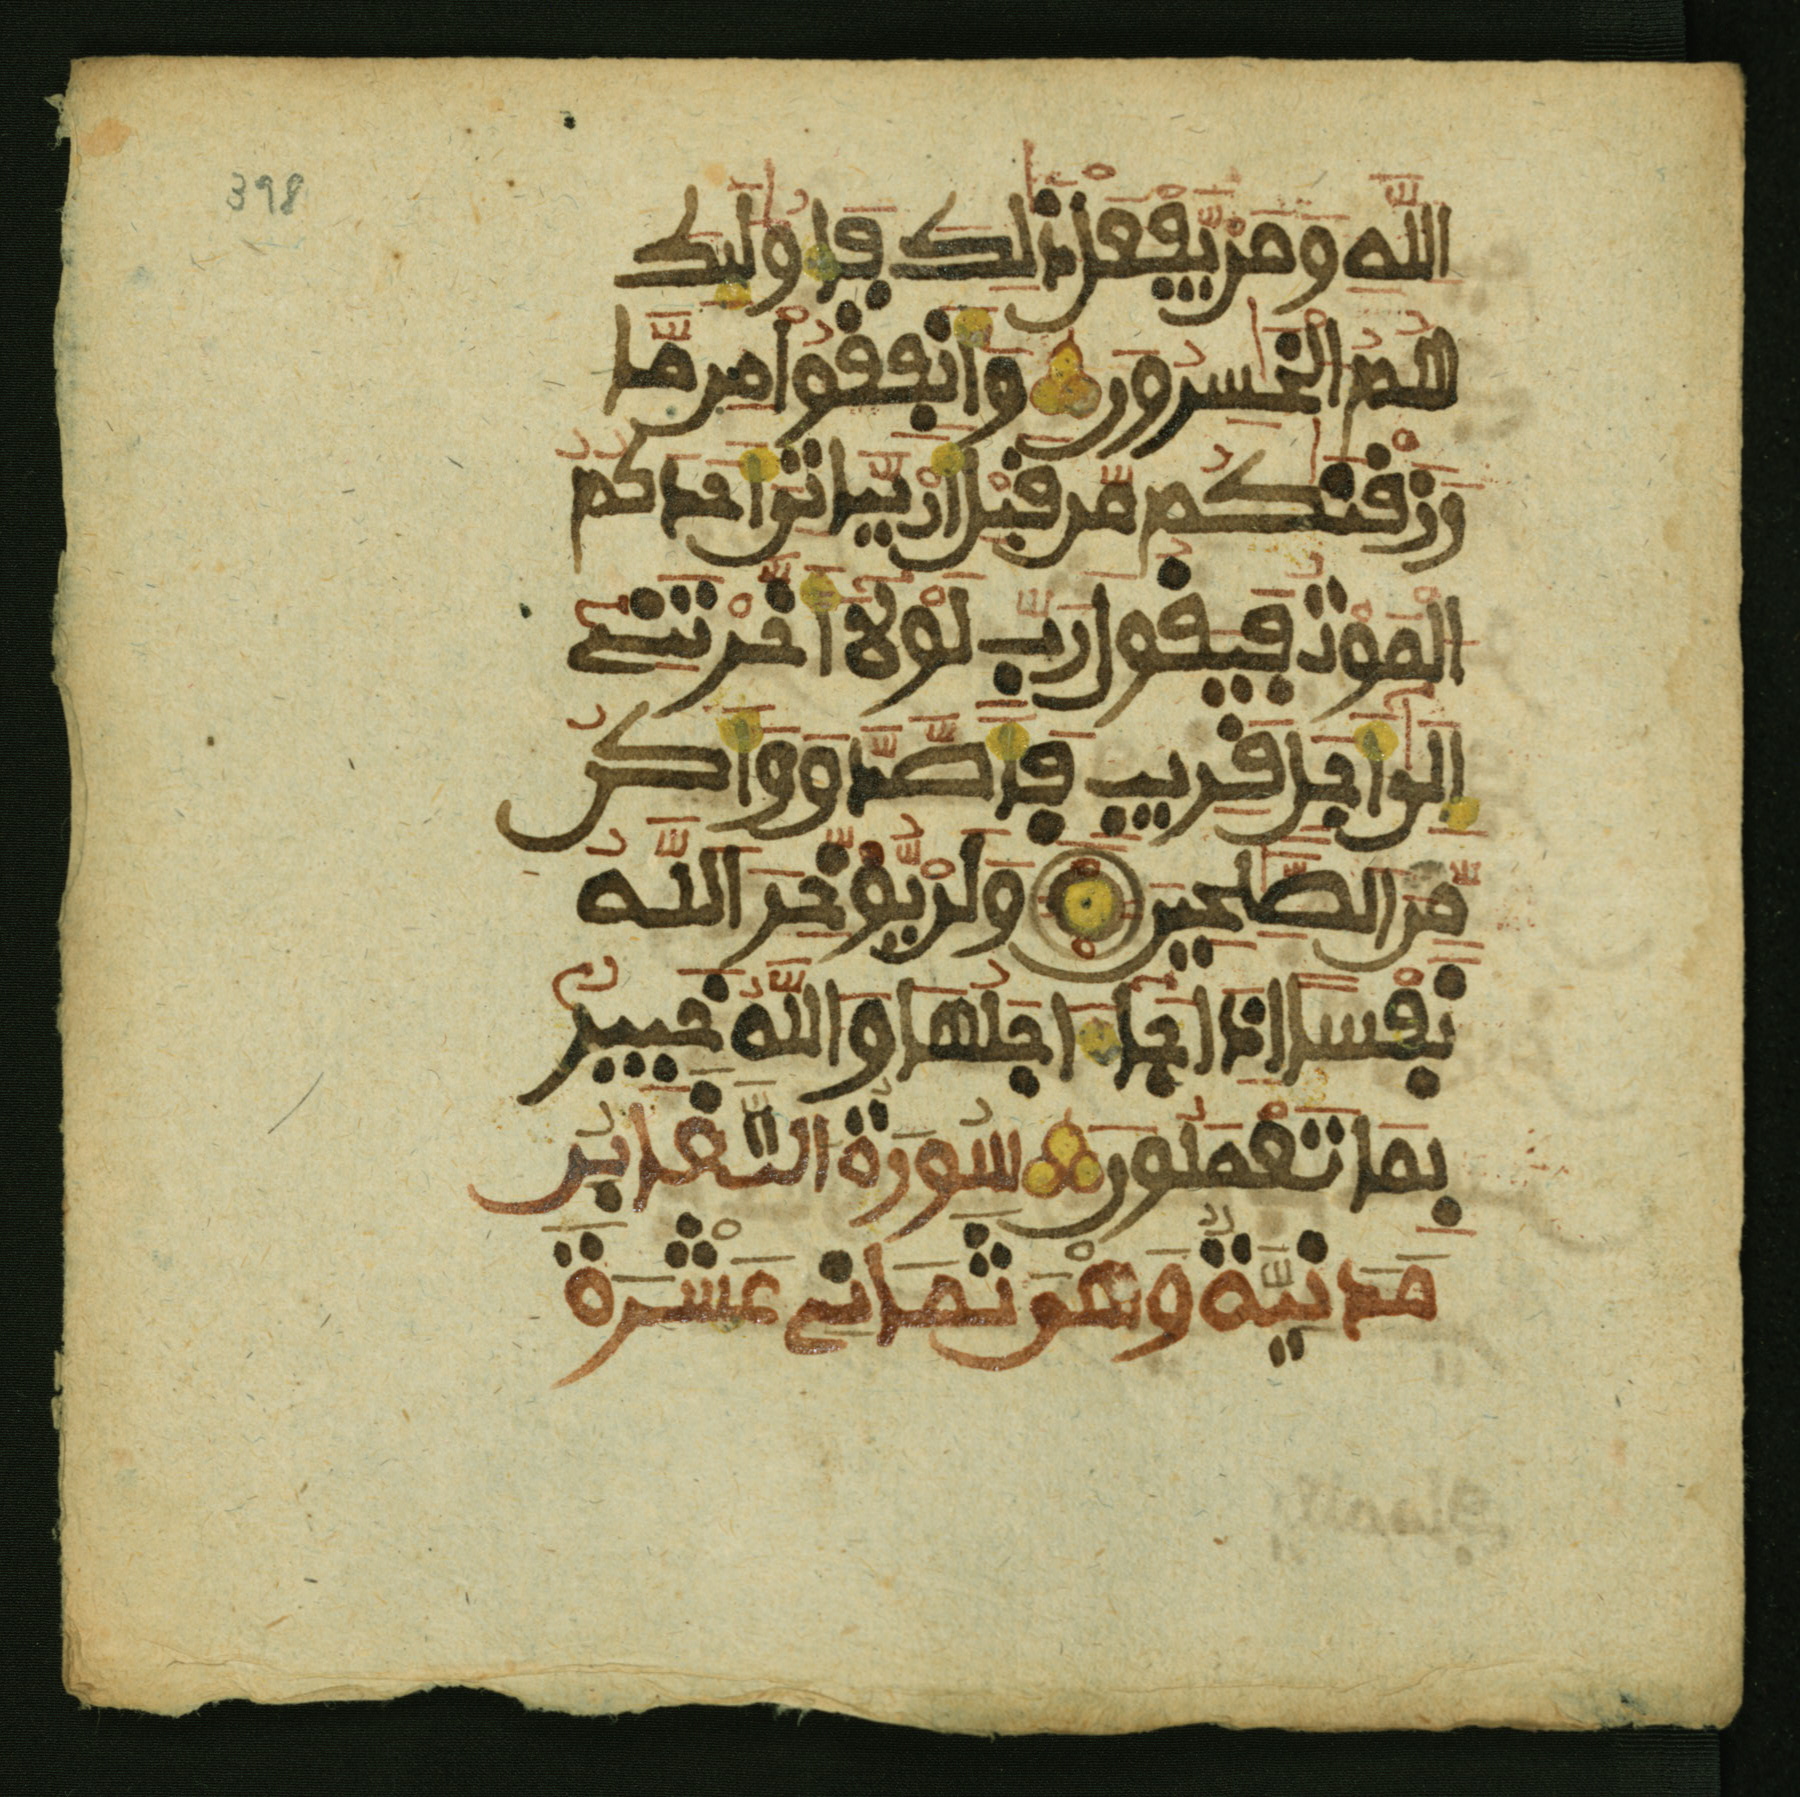 398
اللَّهِ وَمَنْ يَّفْعَلْ ذَٰلِكَ فَأُوْلَٰئِكَ
هُمُ الْخَٰسِرُونَ وَأَنفِقُواْ مِن مَّا
رَزَقْنَٰكُم مِّن قَبْلِ أَنْ يَّاتِيَ أَحَدَكُمُ
الْمَوْتُ فَيَقُولَ رَبِّ لَوْلَا أَخَّرْتَنِي
إِلَىٰ أَجَلٍ قَرِيبٍ فَأَصَّدَّقَ وَأَكُن
مِّنَ الصَّٰلِحِينَ وَلَنْ يُّؤَخِّرَ اللَّهُ
نَفْسًا إِذَا جَاءَ اجَلُهَا وَاللَّهُ خَبِيرٌ
بِمَا تَعْمَلُونَ سُورَةُ التَّغَابُنِ
مَدَنِيَّةٌ وَهْىَ ثَمَانِي عَشْرَةَ